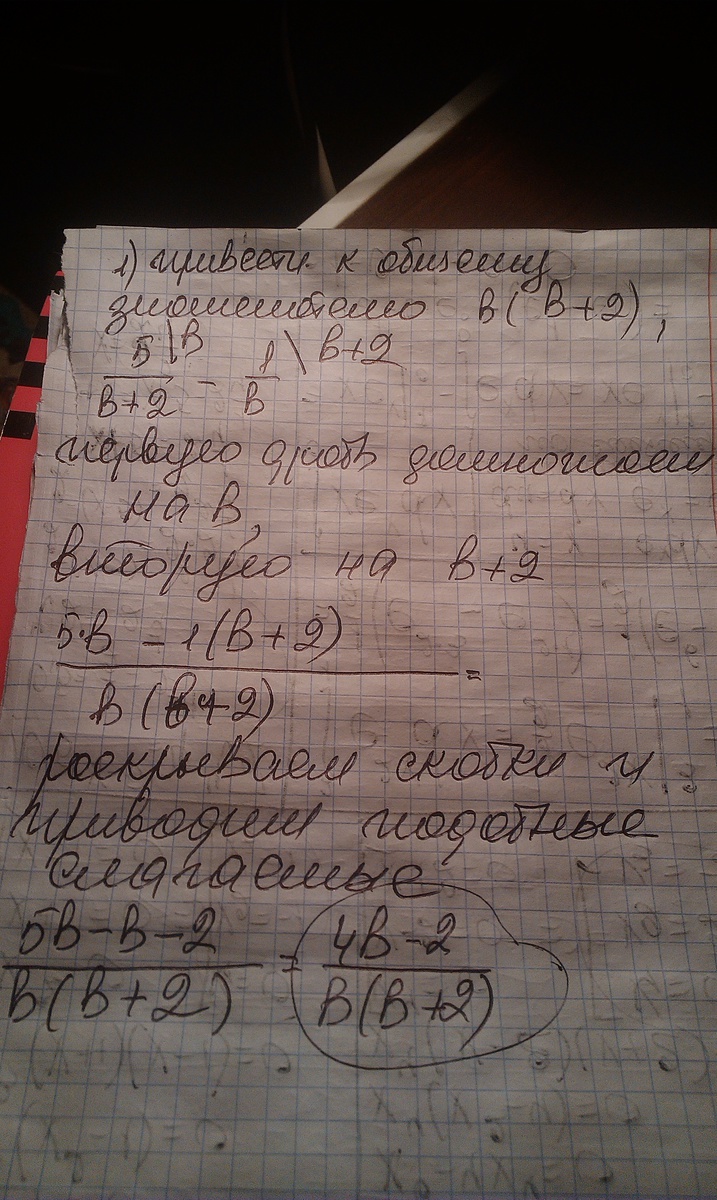 1) привести к общему
знаменателю в(в+2),
5\в 1\в+2
в+2 - в
первую дробь домножаем
на в,
вторую на в+2
5·в - 1(в+2)
в(в+2) =
раскрываем скобки и
приводим подобные
слагаемые
5в-в-2 = 4в-2
в(в+2) в(в+2)